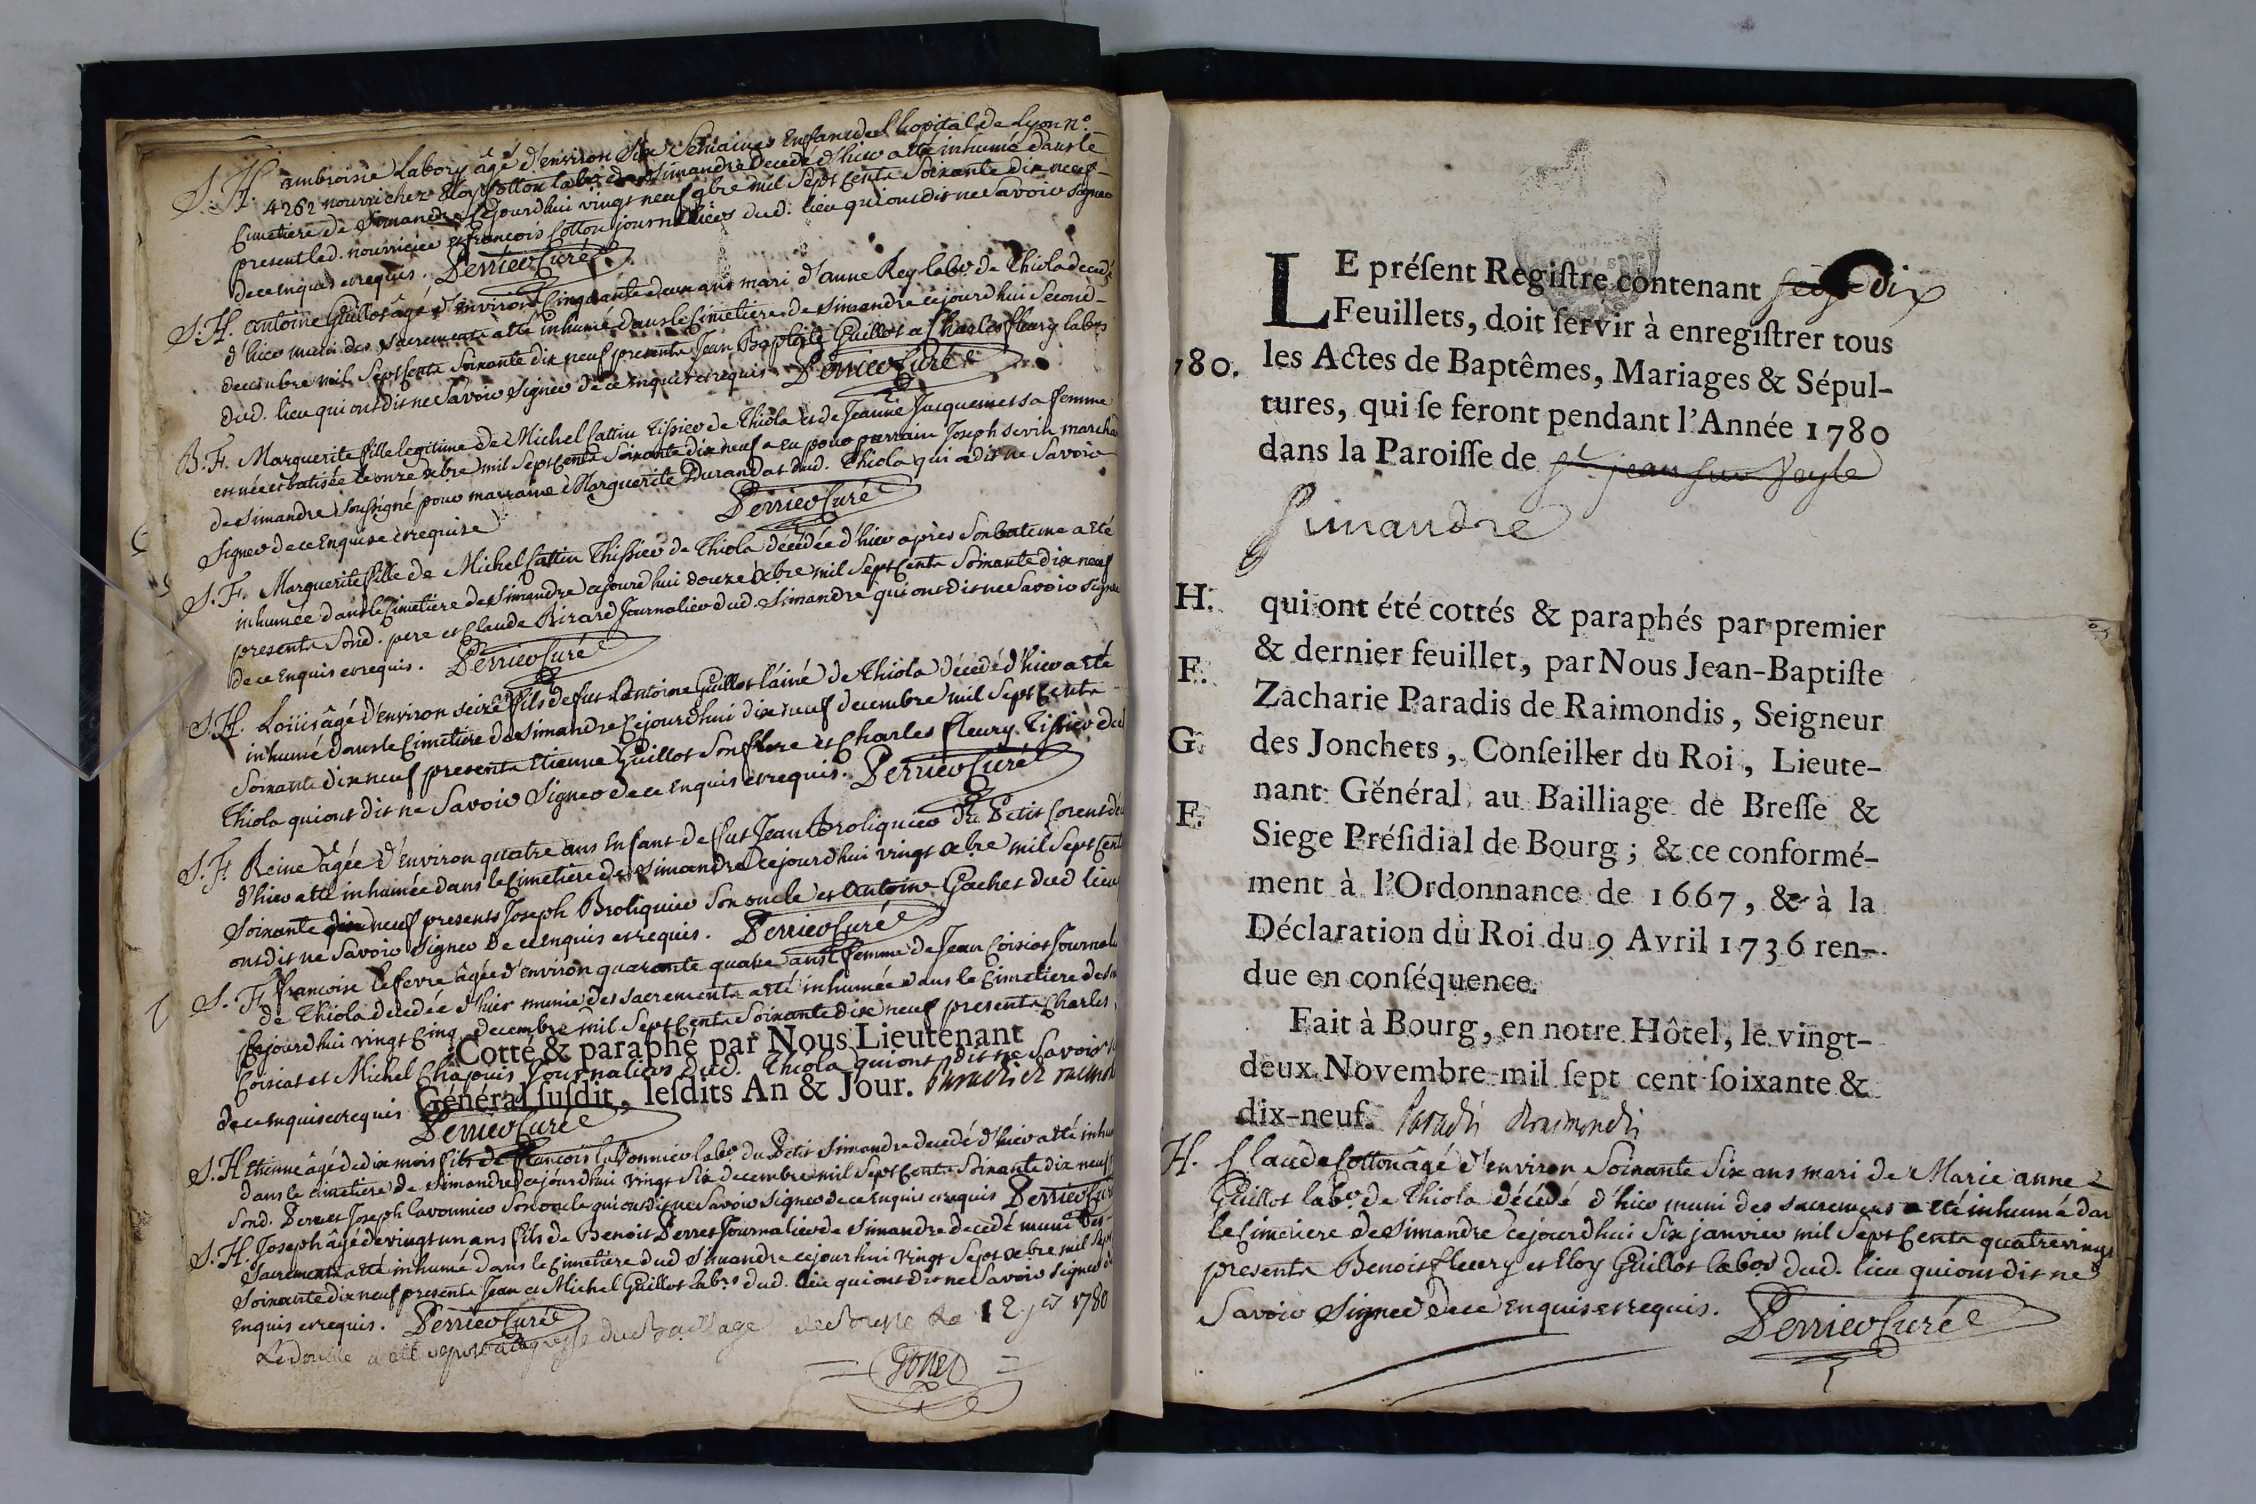 S. H. ambroise Labory âgé d'environ Six Semaines Enfant de l'hopital de Lyon n.º
4262 nourri chez Eloy Cotton labr de Simandre decedé d'hier a été inhumé dans le
Cimetiere de Simandre Cejourdhui vingt neuf 9bre mil Sept Cents Soixante dix neuf
present led. nourricier et francois Cotton journaliers dud. lieu qui ont dit ne Savoir signer
de ce enquis et requis. Perrier Curé
S. H. Antoine Guillot âgé d'environ Cinquante et un ans mari d'anne Rey labr de Thiola decedé
d'hier muni des Sacrements a été inhumé dans le Cimetiere de Simandre cejourdhui Second
decembre mil Sept Cents Soixante dix neuf presents Jean Baptiste Guillot et Charles fleury labrs
dud. lieu qui ont dit ne Savoir Signer de ce enquis et requis. Perrier Curé
B. F. Marguerite fille legitime de Michel Cattin Tissier de Thiola et de Jeanne Jacquemet sa femme
est née et batisée le onze xbre mil Sept Cents Soixante dix neuf a eu pour parrain Joseph Sevin marchand
de Simandre Soussigné pour marraine Marguerite Durandat dud. Thiola qui a dit ne Savoir
Signer de ce Enquise et requise Perrier Curé
S. F. Marguerite fille de Michel Cattin Thissier de Thiola décédée d'hier après Son batême a été
inhumée dans le Cimetiere de Simandre cejourdhui douze xbre mil Sept Cents Soixante dix neuf
presents Sond. pere et Claude Rirard Journalier dud. Simandre qui ont dit ne Savoir signer
de ce Enquis et requis. Perrier Curé
S. H. Loüis âgé d'environ seize ans fils de fut Antoine Guillot l'ainé de Thiola décédé d'hier a été
inhumé dans le Cimetiere de Simandre Cejourdhui dix neuf decembre mil Sept Cents
Soixante dix neuf presents Etienne Guillot Son frere et Charles fleury Tissier dud
Thiola qui ont dit ne Savoir Signer de ce enquis et requis. Perrier Curé
S. F. Reine âgée d'environ quatre ans Enfant de fut Jean Broliquier du Petit Corent
d'hier a été inhumée dans le Cimetiere de Simandre Cejourdhui vingt xbre mil Sept Cents
Soixante dix neuf presents Joseph Broliquier Son oncle et Antoine Gachet dud lieu
ont dit ne Savoir Signer De ce enquis et requis. Perrier Curé
S. F. francoise lefevre âgée d'environ quarante quatre ans femme de Jean Coisiat Journalier
de Thiola decedée d'hier munie des sacrements a été inhumée dans le Cimetiere de
Cejourdhui vingt Cinq decembre mil Sept Cents Soixante dix neuf presents Charles
Cotté & paraphé par Nous Lieutenant
Coisiat et Michel Chapuis Journaliers Dud. Thiola qui ont dit ne Savoir
Général susdit, lesdits An & Jour. Paradis de raimondis
de ce enquis et requis Perrier Curé
S. H. Etienne âgé de dix mois fils de francois lavonnier labr. du Petit Simandre decedé d'hier a été inhumé
dans le cimetiere de Simandre cejourdhui vingt Six decembre mil Sept Cents Soixante dix neuf
Sond. Pere et Joseph lavonnier Son oncle qui ont dit ne Savoir Signer de ce Enquis et requis Perrier Curé
S. H. Joseph âgé de vingt un ans fils de Benoit Perret Journalier de Simandre decedé muni des
Sacrements a été inhumé dans le Cimetiere dud Simandre cejourhui vingt Sept xbre mil Sept
Soixante dix neuf presents Jean et Michel Guillot labrs dud. lieu qui ont dit ne Savoir signer de
Enquis et requis. Perrier Curé
Le double a été deposé au greffe du Bailliage de Bresse le 12 jer 1780
Gonet
LE présent Registre contenant seize dix
Feuillets, doit servir à enregistrer tous
780. les Actes de Baptêmes, Mariages & Sépul-
tures, qui se feront pendant l'Année 1780
dans la Paroisse de St. jean sur Veyle
Simandre
H. qui ont été cottés & paraphés par premier
& dernier feuillet, par Nous Jean-Baptiste
F. Zacharie Paradis de Raimondis, Seigneur
G. des Jonchets, Conseiller du Roi, Lieute-
nant Général au Bailliage de Bresse &
F. Siege Présidial de Bourg ; & ce conformé-
ment à l'Ordonnance de 1667, & à la
Déclaration du Roi du 9 Avril 1736 ren-
due en conséquence.
Fait à Bourg, en notre Hôtel, le vingt-
deux Novembre mil sept cent soixante &
dix-neuf. Paradis Raimondis
H. Claude Cotton âgé d'environ Soixante Six ans mari de Marie anne
Guillot labr. de Thiola décédé d'hier muni des sacrements a été inhumé dans
le Cimetiere de Simandre Cejourdhui Six janvier mil Sept Cents quatrevingt
presents Benoit fleury et Eloy Guillot labrs dud. lieu qui ont dit ne
Savoir Signer de ce Enquis et requis. Perrier Curé